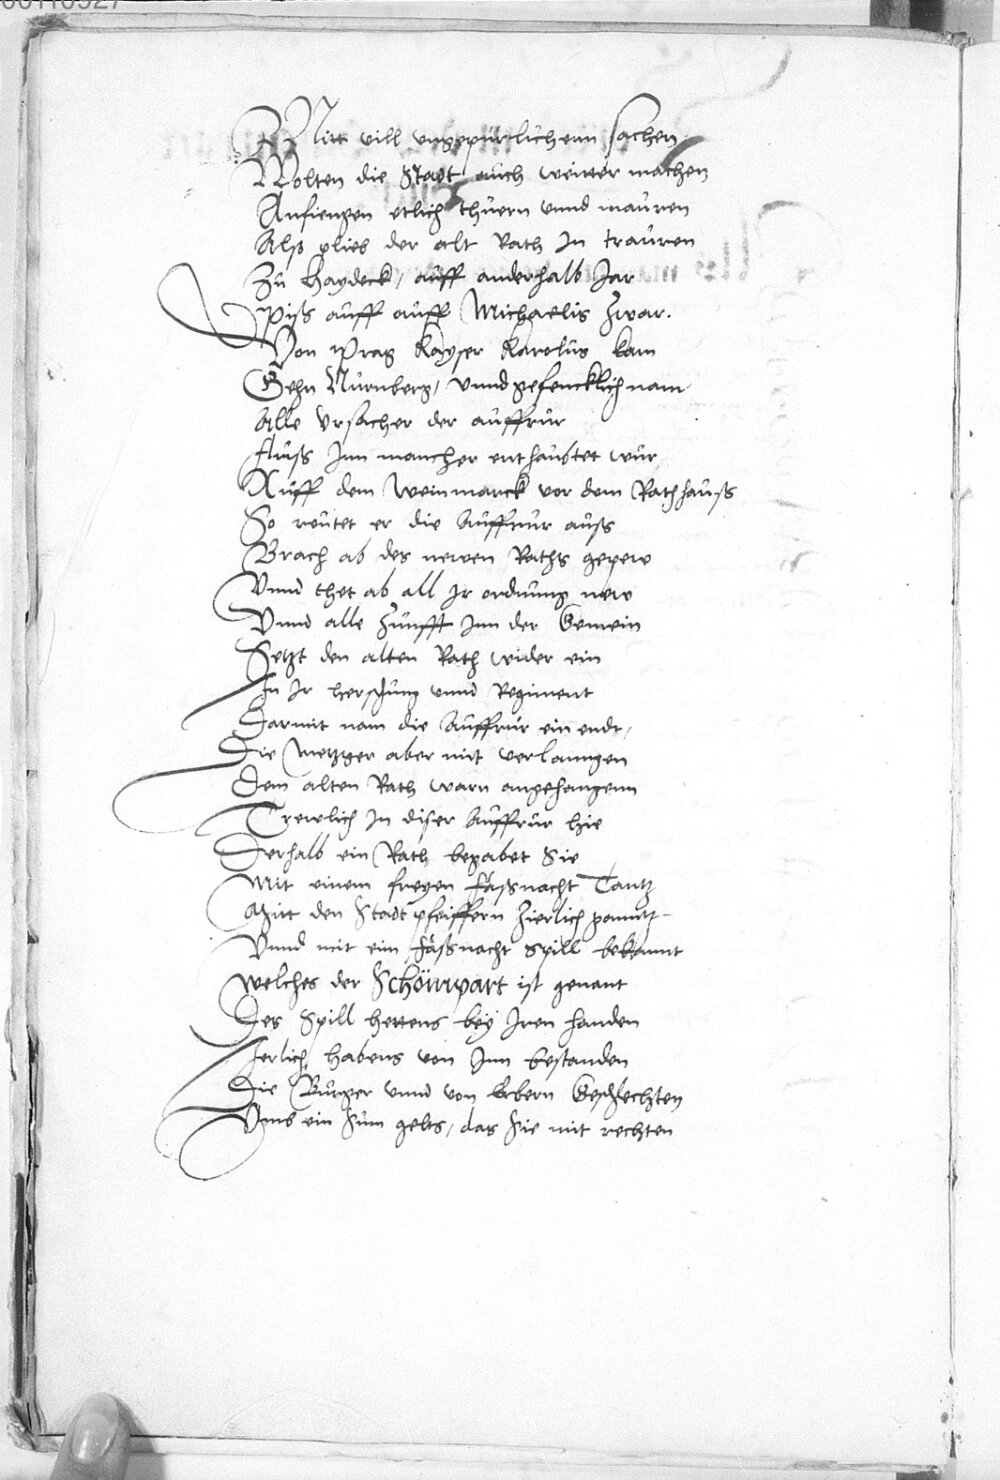 Mitt vill ungepürlichenn sachen
Wolten die Stadt auch weitter machen
Anfiengen etlich thüern unnd mauren
Alß plieb der alt Rath In trauren
Zu Haydeck / auff anderhalb Jar
Piß auff auff Michaelis Zwar.
Von Prag Kayser Karolus kam
Gehn Nürnberg / unnd gefencklich nam
Alle Ursacher der auffrur
Auß Inn mancher enthaubtet wur
Auff dem Weinmarck vor dem Rathhauß
So reutet er die Auffrur auß
Brach ab des newen Raths gepew
Unnd thet ab all Ir ordnung new
Unnd alle Zunfft Inn der Gemein
Setzt den alten Rath wider ein
In Ir herschung unnd Regiment
Darmit nam die Auffrur ein endt /
Die Metzger aber mit verlanngen
Dem alten Rath warn angehangenn
Trewlich In diser Auffrur hie
Derhalb ein Rath begabet Sie
Mit einem freyen faßnacht Tantz
Mitt den Stadtpfeiffern Zierlich gantz
Unnd mit eim faßnacht Spill bekannt
welches der Schönpart ist genant
Des Spill hettens bey Iren handen
Jerlich habens von Inn bestanden
Die Burger unnd von Erbern Geschlechten
Umb ein Sum gelts / das Sie mit rechten